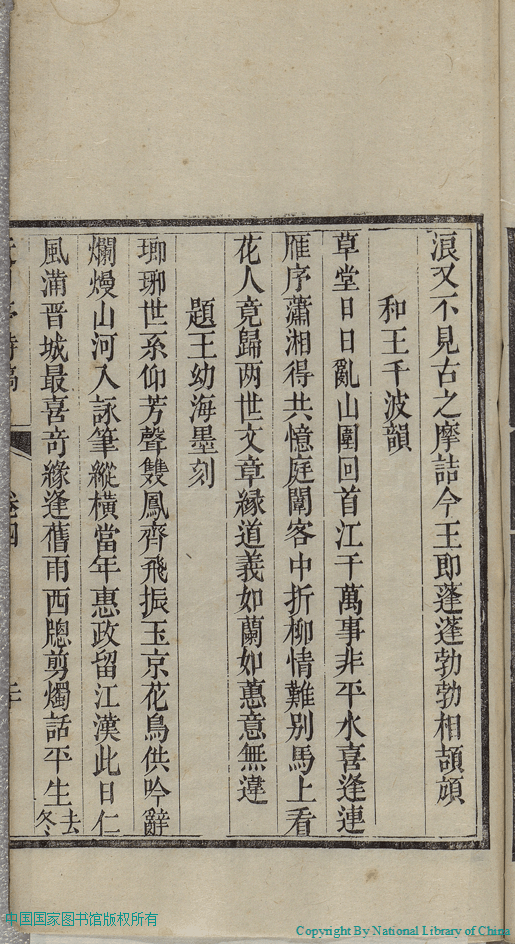 浪又不見古之摩詰今王郎蓬蓬勃勃相頡頏
和王千波韻
草堂日日亂山圍回首江干萬事非平水喜逢連
雁序瀟湘得共憶庭闈客中折柳情難别馬上看
花人竟歸两世文章緣道義如蘭如蕙意無違
題王幼海墨刻
瑯琊世系仰芳聲雙鳳齊飛振玉京花鳥供吟辭
爛熳山河入詠筆縱橫當年惠政留江漢此日仁
風滿晉城最喜奇緣逢舊雨西牕剪燭話平生去冬
詩稿
卷四
中国国家图书馆版权所有
Copyright By National Library of China